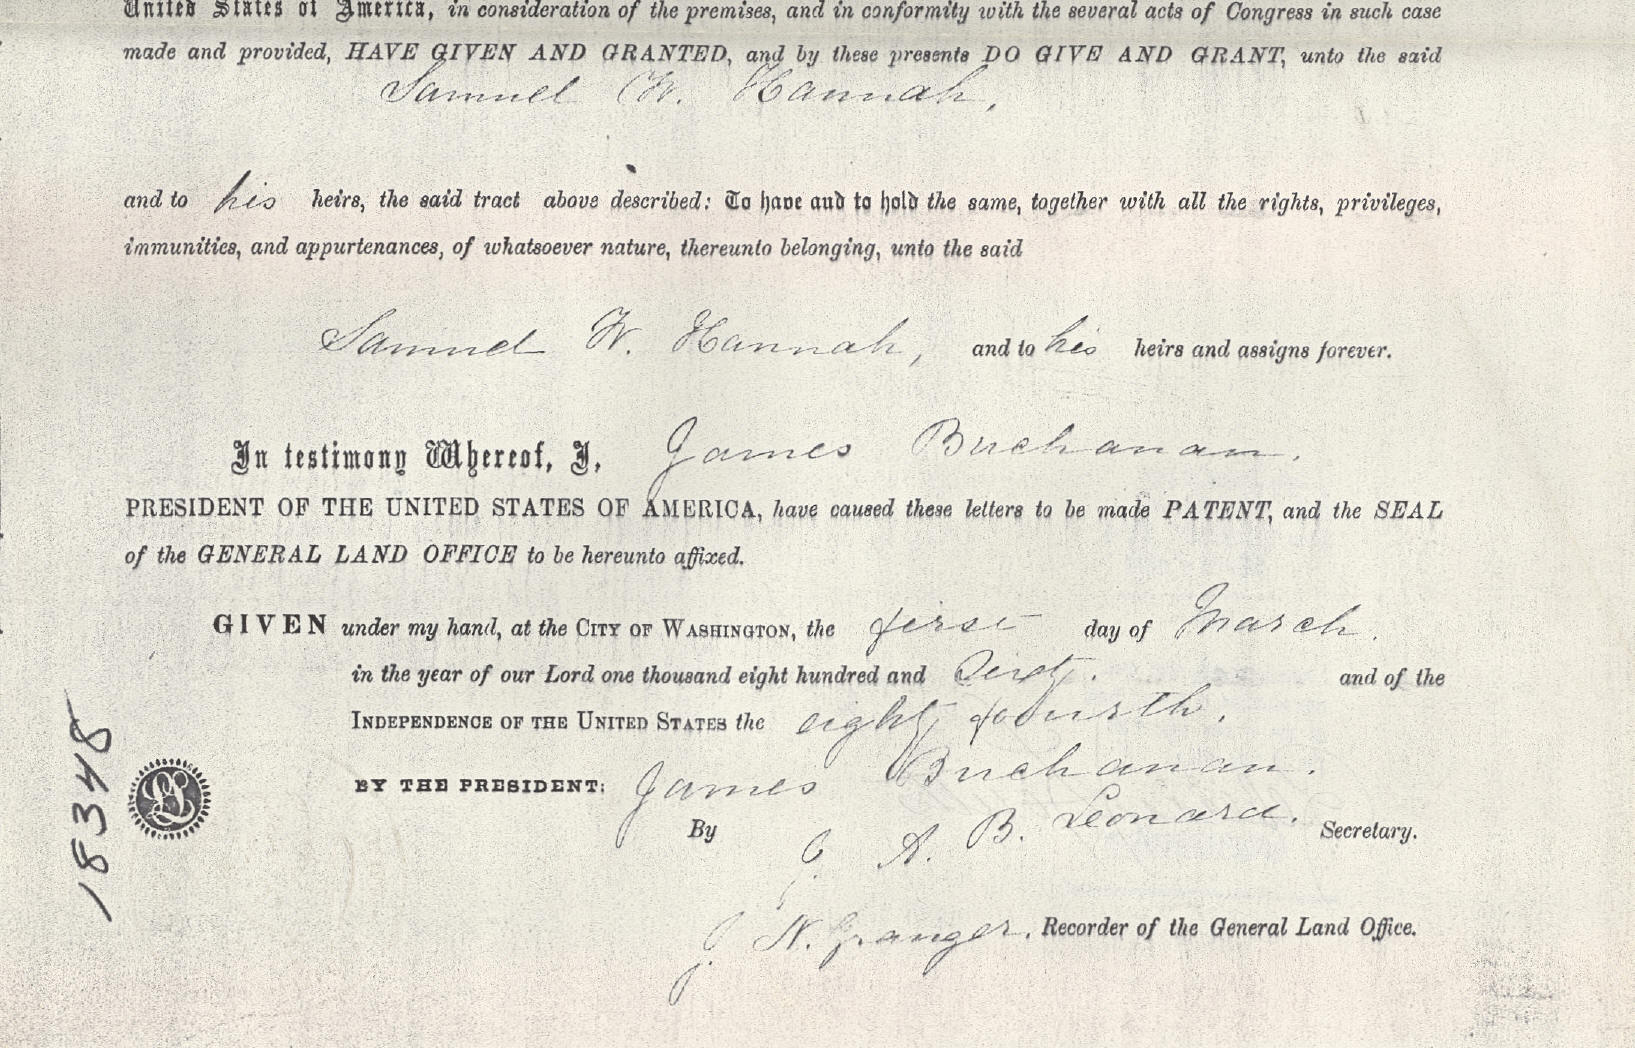 United States of America, in consideration of the premises, and in conformity with the several acts of Congress in such case
made and provided, HAVE GIVEN AND GRANTED, and by these presents DO GIVE AND GRANT, unto the said
Samuel W. Hannah,
and to his heirs, the said tract above described: To have and to hold the same, together with all the rights, privileges,
immunities, and appurtenances, of whatsoever nature, thereunto belonging, unto the said
Samuel W. Hannah, and to his heirs and assigns forever.
In testimony Whereof, I, James Buchanan.
PRESIDENT OF THE UNITED STATES OF AMERICA, have caused these letters to be made PATENT, and the SEAL
of the GENERAL LAND OFFICE to be hereunto affixed.
GIVEN under my hand, at the CITY OF WASHINGTON, the first day of March.
in the year of our Lord one thousand eight hundred and Sixty. and of the
INDEPENDENCE OF THE UNITED STATES the eighty fourth.
BY THE PRESIDENT: James Buchanan.
By J. A. B. Leonard. Secretary.
J. N. Granger. Recorder of the General Land Office.
18348
LS